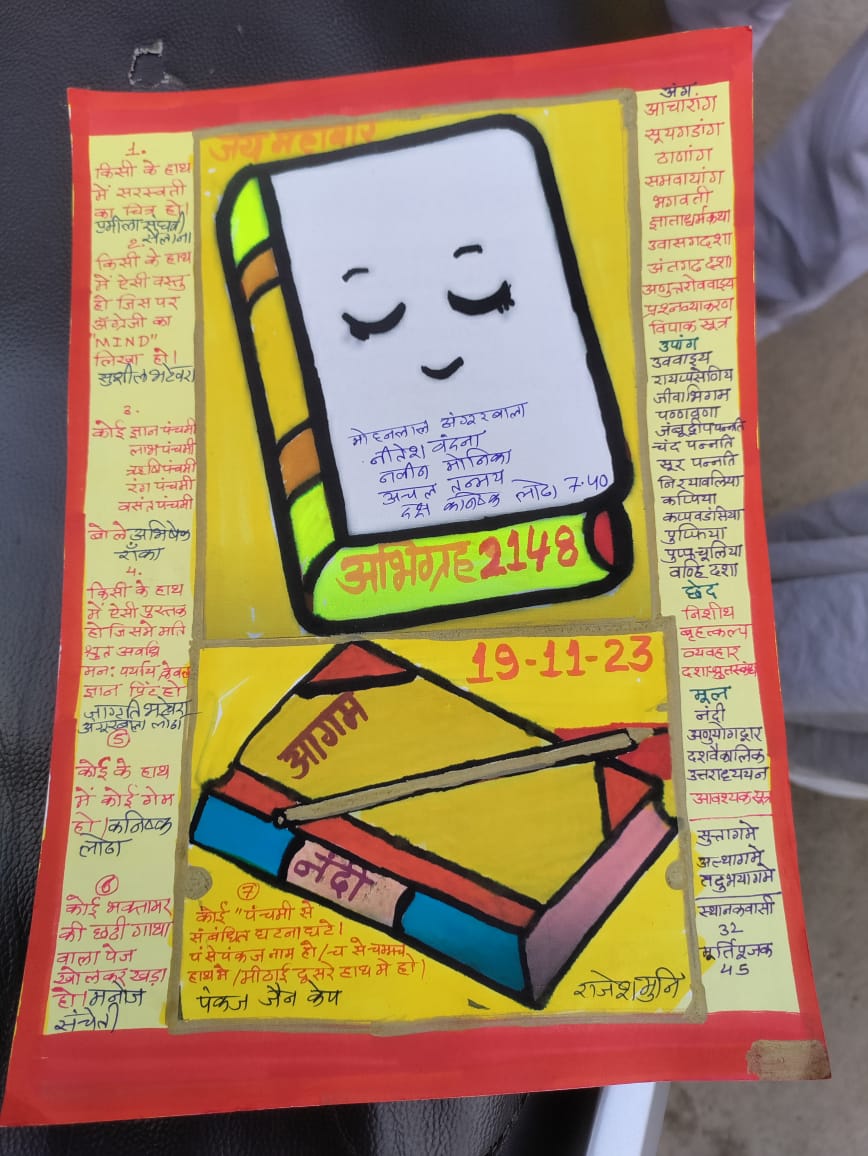 जय महावीर
1.
किसी के हाथ
में सरस्वती
का चित्र हो।
प्रमीला
सैलाना
2.
किसी के हाथ
में ऐसी वस्तु
हो जिस पर
अँग्रेजी का
"MIND"
लिखा हो।
सुशील भटेवरा
3.
कोई ज्ञान पंचमी
लाभ पंचमी
ऋषि पंचमी
रंग पंचमी
वसंत पंचमी
बोले अभिषेक
राँका
4.
किसी के हाथ
में ऐसी पुस्तक
हो जिसमे मति
श्रुत अवधि
मन: पर्याय केवल
ज्ञान प्रिंट हो
जागृति भटेवरा
लोढा
5
कोई के हाथ
में कोई गेम
हो। कनिष्क
लोढा
6
कोई भक्तामर
की छठी गाथा
वाला पेज
खोलकर खड़ा
हो। मनोज
संचेती
मोहनलाल
नीतेश वंदना
नवीन मोनिका
अचल तन्मय
दक्ष कनिष्क लोढा 7.40
अभिग्रह 2148
19-11-23
आगम
नंदी
7
कोई "पंचमी से
संबंधित घटना घटे।
पं से पंकज नाम हो / च से चम्मच
हाथ मे / मीठाई दूसरे हाथ मे हो।
पंकज जैन केप
राजेश मुनि
अंग
आचारांग
सूयगडांग
ठाणांग
समवायांग
भगवती
ज्ञाताधर्मकथा
उवासगदशा
अंतगढ दशा
अणुत्तरोववाइय
प्रश्नव्याकरण
विपाक सूत्र
उपांग
उववाइय
रायप्पसेणिय
जीवाभिगम
पण्णवणा
जंबूद्वीपपन्नति
चंद पन्नति
सूर पन्नति
निरयावलिया
कप्पिया
कप्पवडंसिया
पुप्फिया
पुप्फचूलिया
वन्हि दशा
छेद
निशीथ
बृहत्कल्प
व्यवहार
दशाश्रुतस्कंध
मूल
नंदी
अनुयोगद्वार
दशवैकालिक
उत्तराध्ययन
आवश्यक सूत्र
सुत्तागमे
अत्थागमे
तदुभयागमे
स्थानकवासी
32
मूर्तिपूजक
45